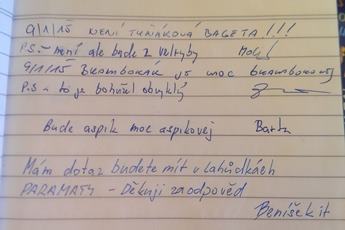 9/1/15 NENÍ TUŇÁKOVÁ BAGETA!!!
P.S. - není ale bude z velryby
9/1/15 BRAMBORÁK JE MOC BRAMBOROVEJ
P.S - to je bohužel obvyklý
Bude aspik moc aspikovej
Mám dotaz budete mít v lahůdkách
PARAMATY - Děkuji za odpověd
Beníšek it